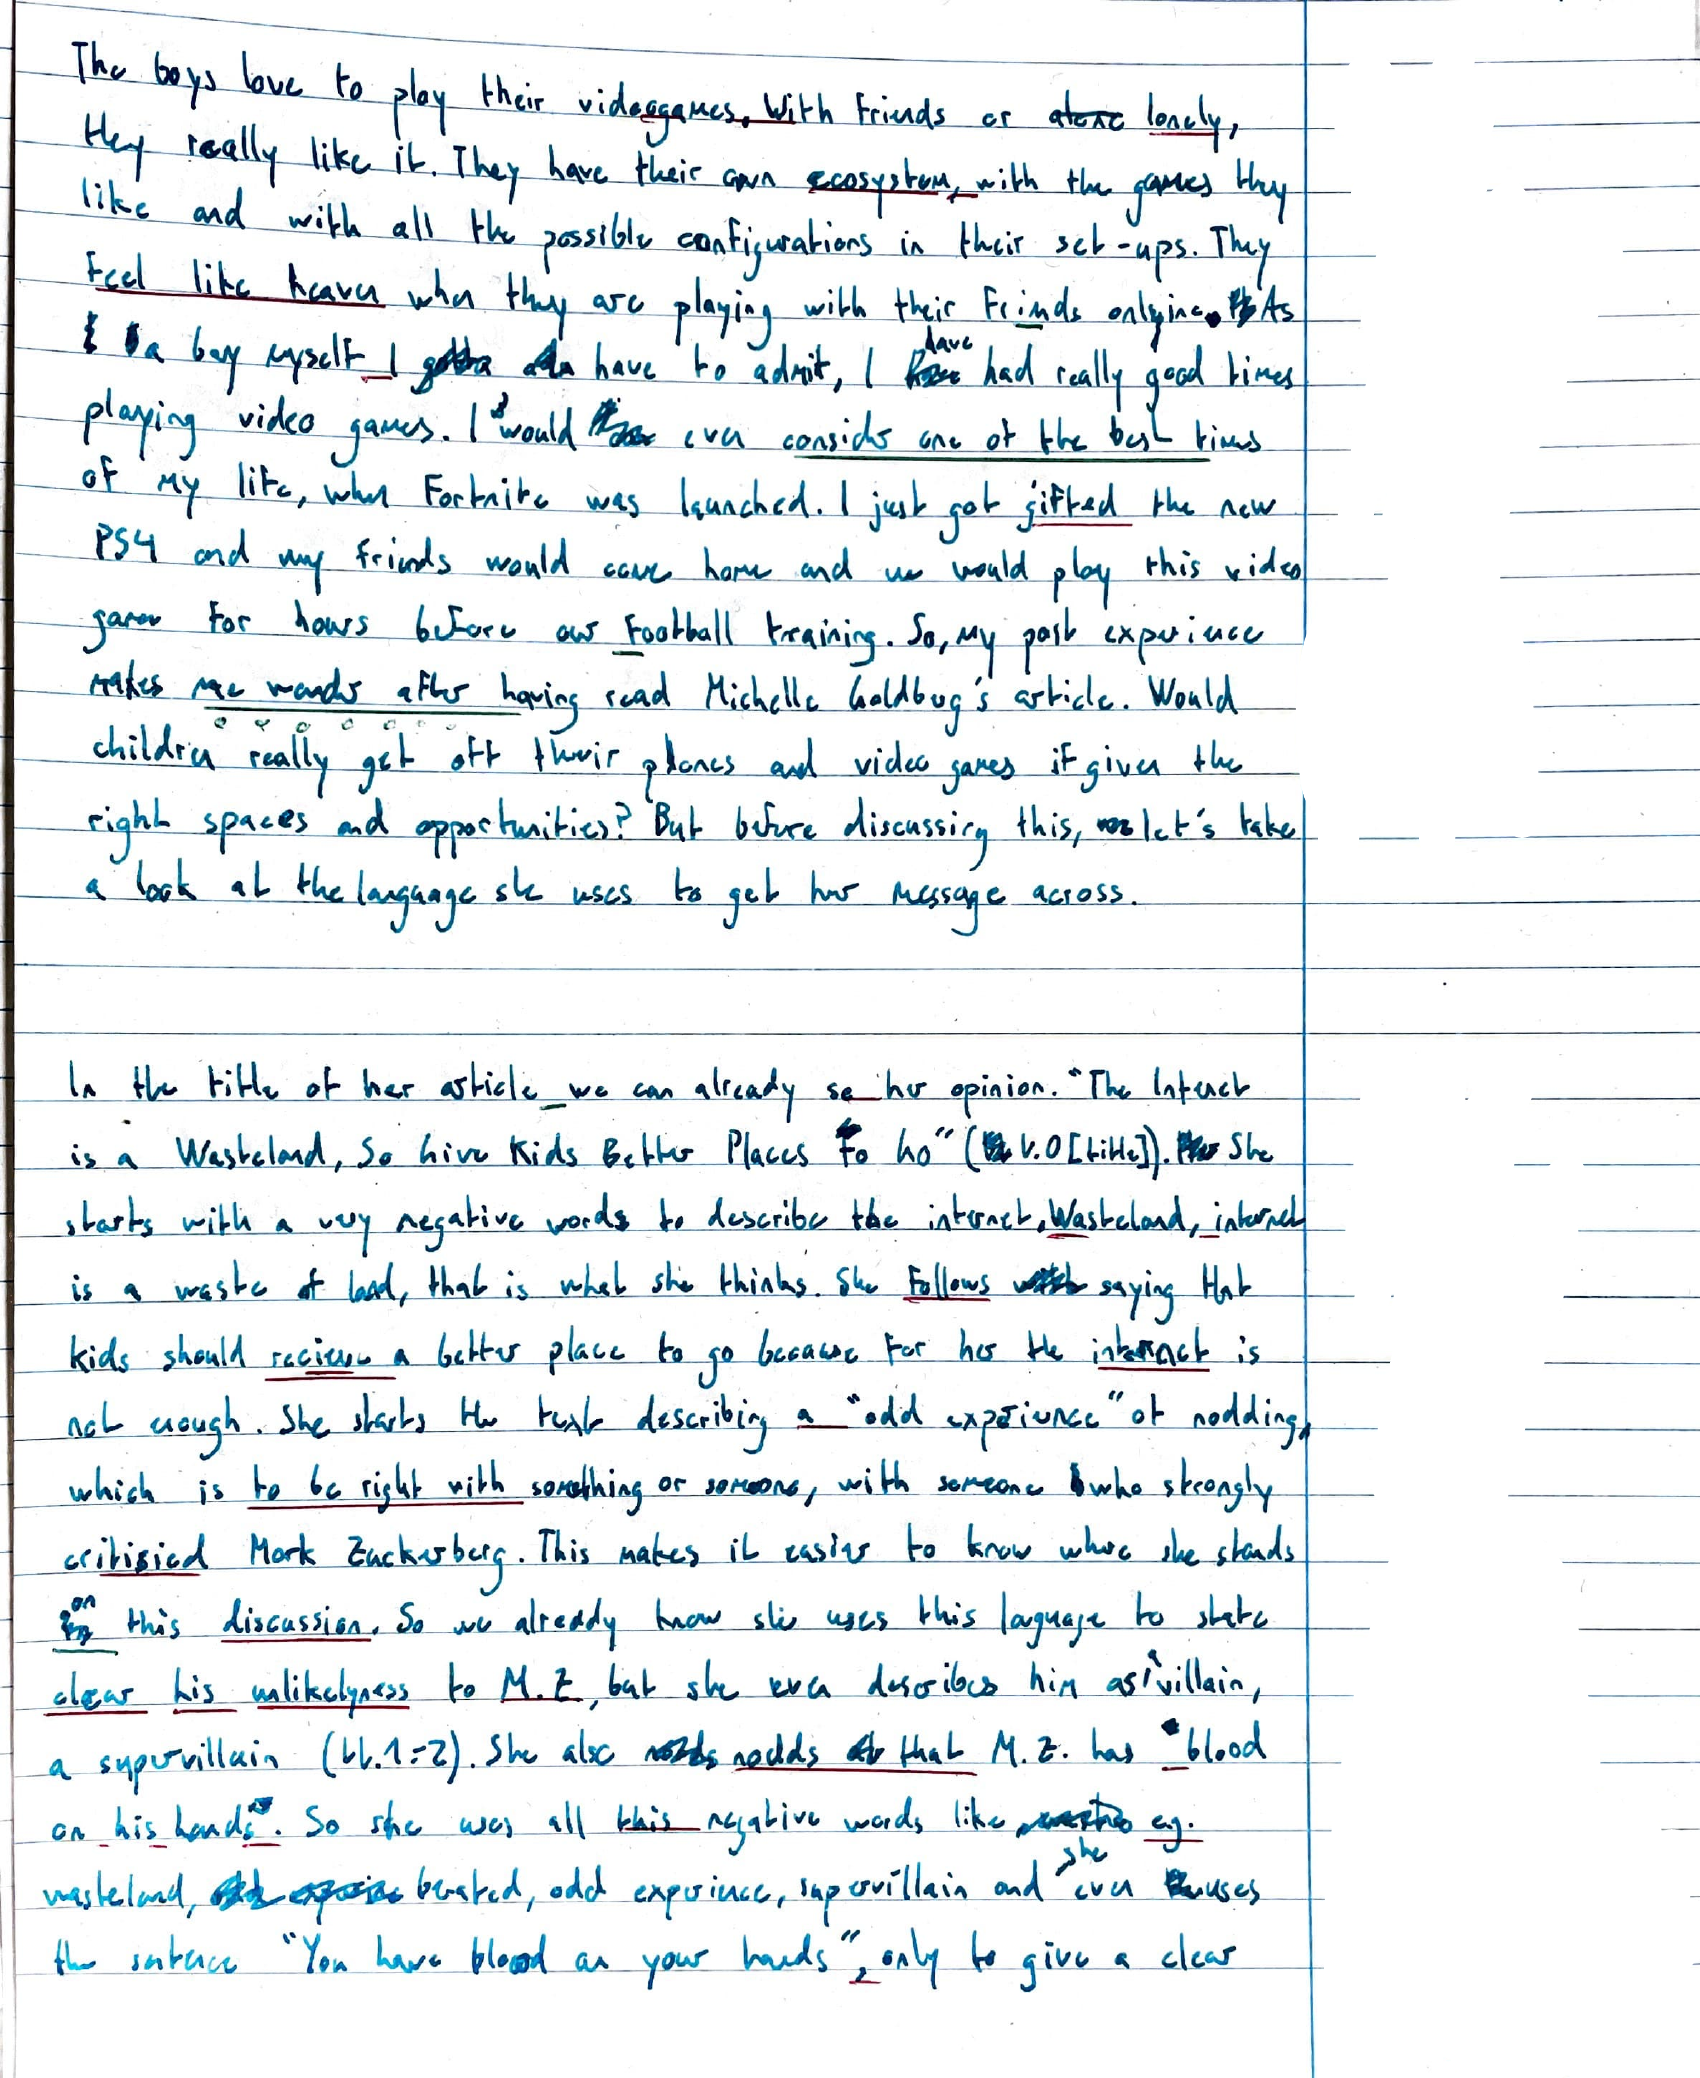 The boys love to play their videogames. With friends or lonely,
they really like it. They have their own ecosystem, with the games they
like and with all the possible configurations in their set-ups. They
feel like heaven when they are playing with their friends onlyine. As
a boy myself I have to admit, I have had really good times
playing video games. I would even consider one of the best times
of my life, when Fortnite was launched. I just got gifted the new
PS4 and my friends would come home and we would play this video
game for hours before our football training. So, my past experience
makes me wonder after having read Michelle Goldbug's article. Would
children really get off their phones and video games if given the
right spaces and opportunities? But before discussing this, let's take
a look at the language she uses to get her message across.
In the title of her article we can already se her opinion. "The Internet
is a Wasteland, So Give Kids Better Places To Go" (l.0[title]). She
starts with a very negative words to describe the internet, Wasteland, internet
is a waste of land, that is what she thinks. She follows saying that
kids should recieve a better place to go because for her the internet is
not enough. She starts the text describing a "odd experience" of nodding,
which is to be right with something or someone, with someone who strongly
critisied Mark Zuckerberg. This makes it easier to know where she stands
on this discussion. So we already know she uses this language to state
clear his unlikelyness to M.Z, but she even describes him as villain,
a supervillain (ll.1-2). She also nodds that M.Z. has "blood
on his hands". So she uses all this negative words like eg.
wasteland, berated, odd experience, supervillain and she even uses
the sentence "You have blood on your hands", only to give a clear